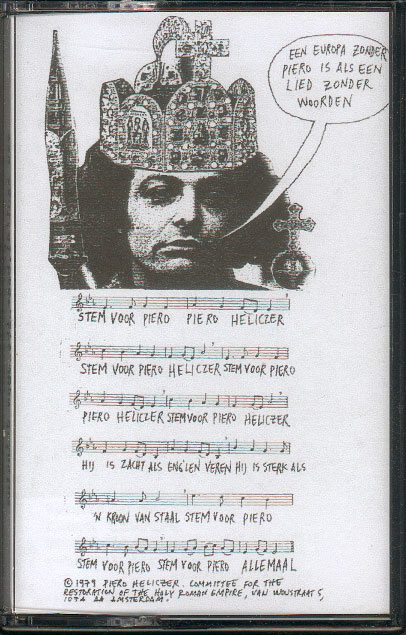 EEN EUROPA ZONDER
PIERO IS ALS EEN
LIED ZONDER
WOORDEN
STEM VOOR PIERO PIERO HELICZER
STEM VOOR PIERO HELICZER STEM VOOR PIERO
PIERO HELICZER STEM VOOR PIERO HELICZER
HIJ IS ZACHT ALS ENG'LEN VEREN HIJ IS STERK ALS
'N KROON VAN STAAL STEM VOOR PIERO
STEM VOOR PIERO STEM VOOR PIERO ALLEMAAL
© 1979 PIERO HELICZER. COMMITTEE FOR THE
RESTORATION OF THE HOLY ROMAN EMPIRE, VAN WOUSTRAAT 5,
1074 AA AMSTERDAM.